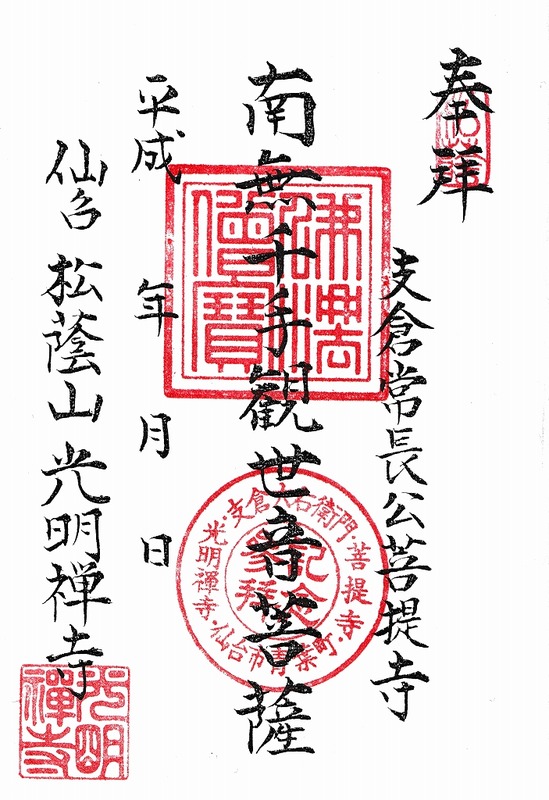 奉拝
支倉常長公菩提寺
南無千手観世音菩薩
平成 年 月 日
仙台 松蔭山 光明禅寺
佛法僧寳
支倉六右衛門・菩提寺
・仙台市青葉町・
光明禪寺
記念
参拝
光明禪寺